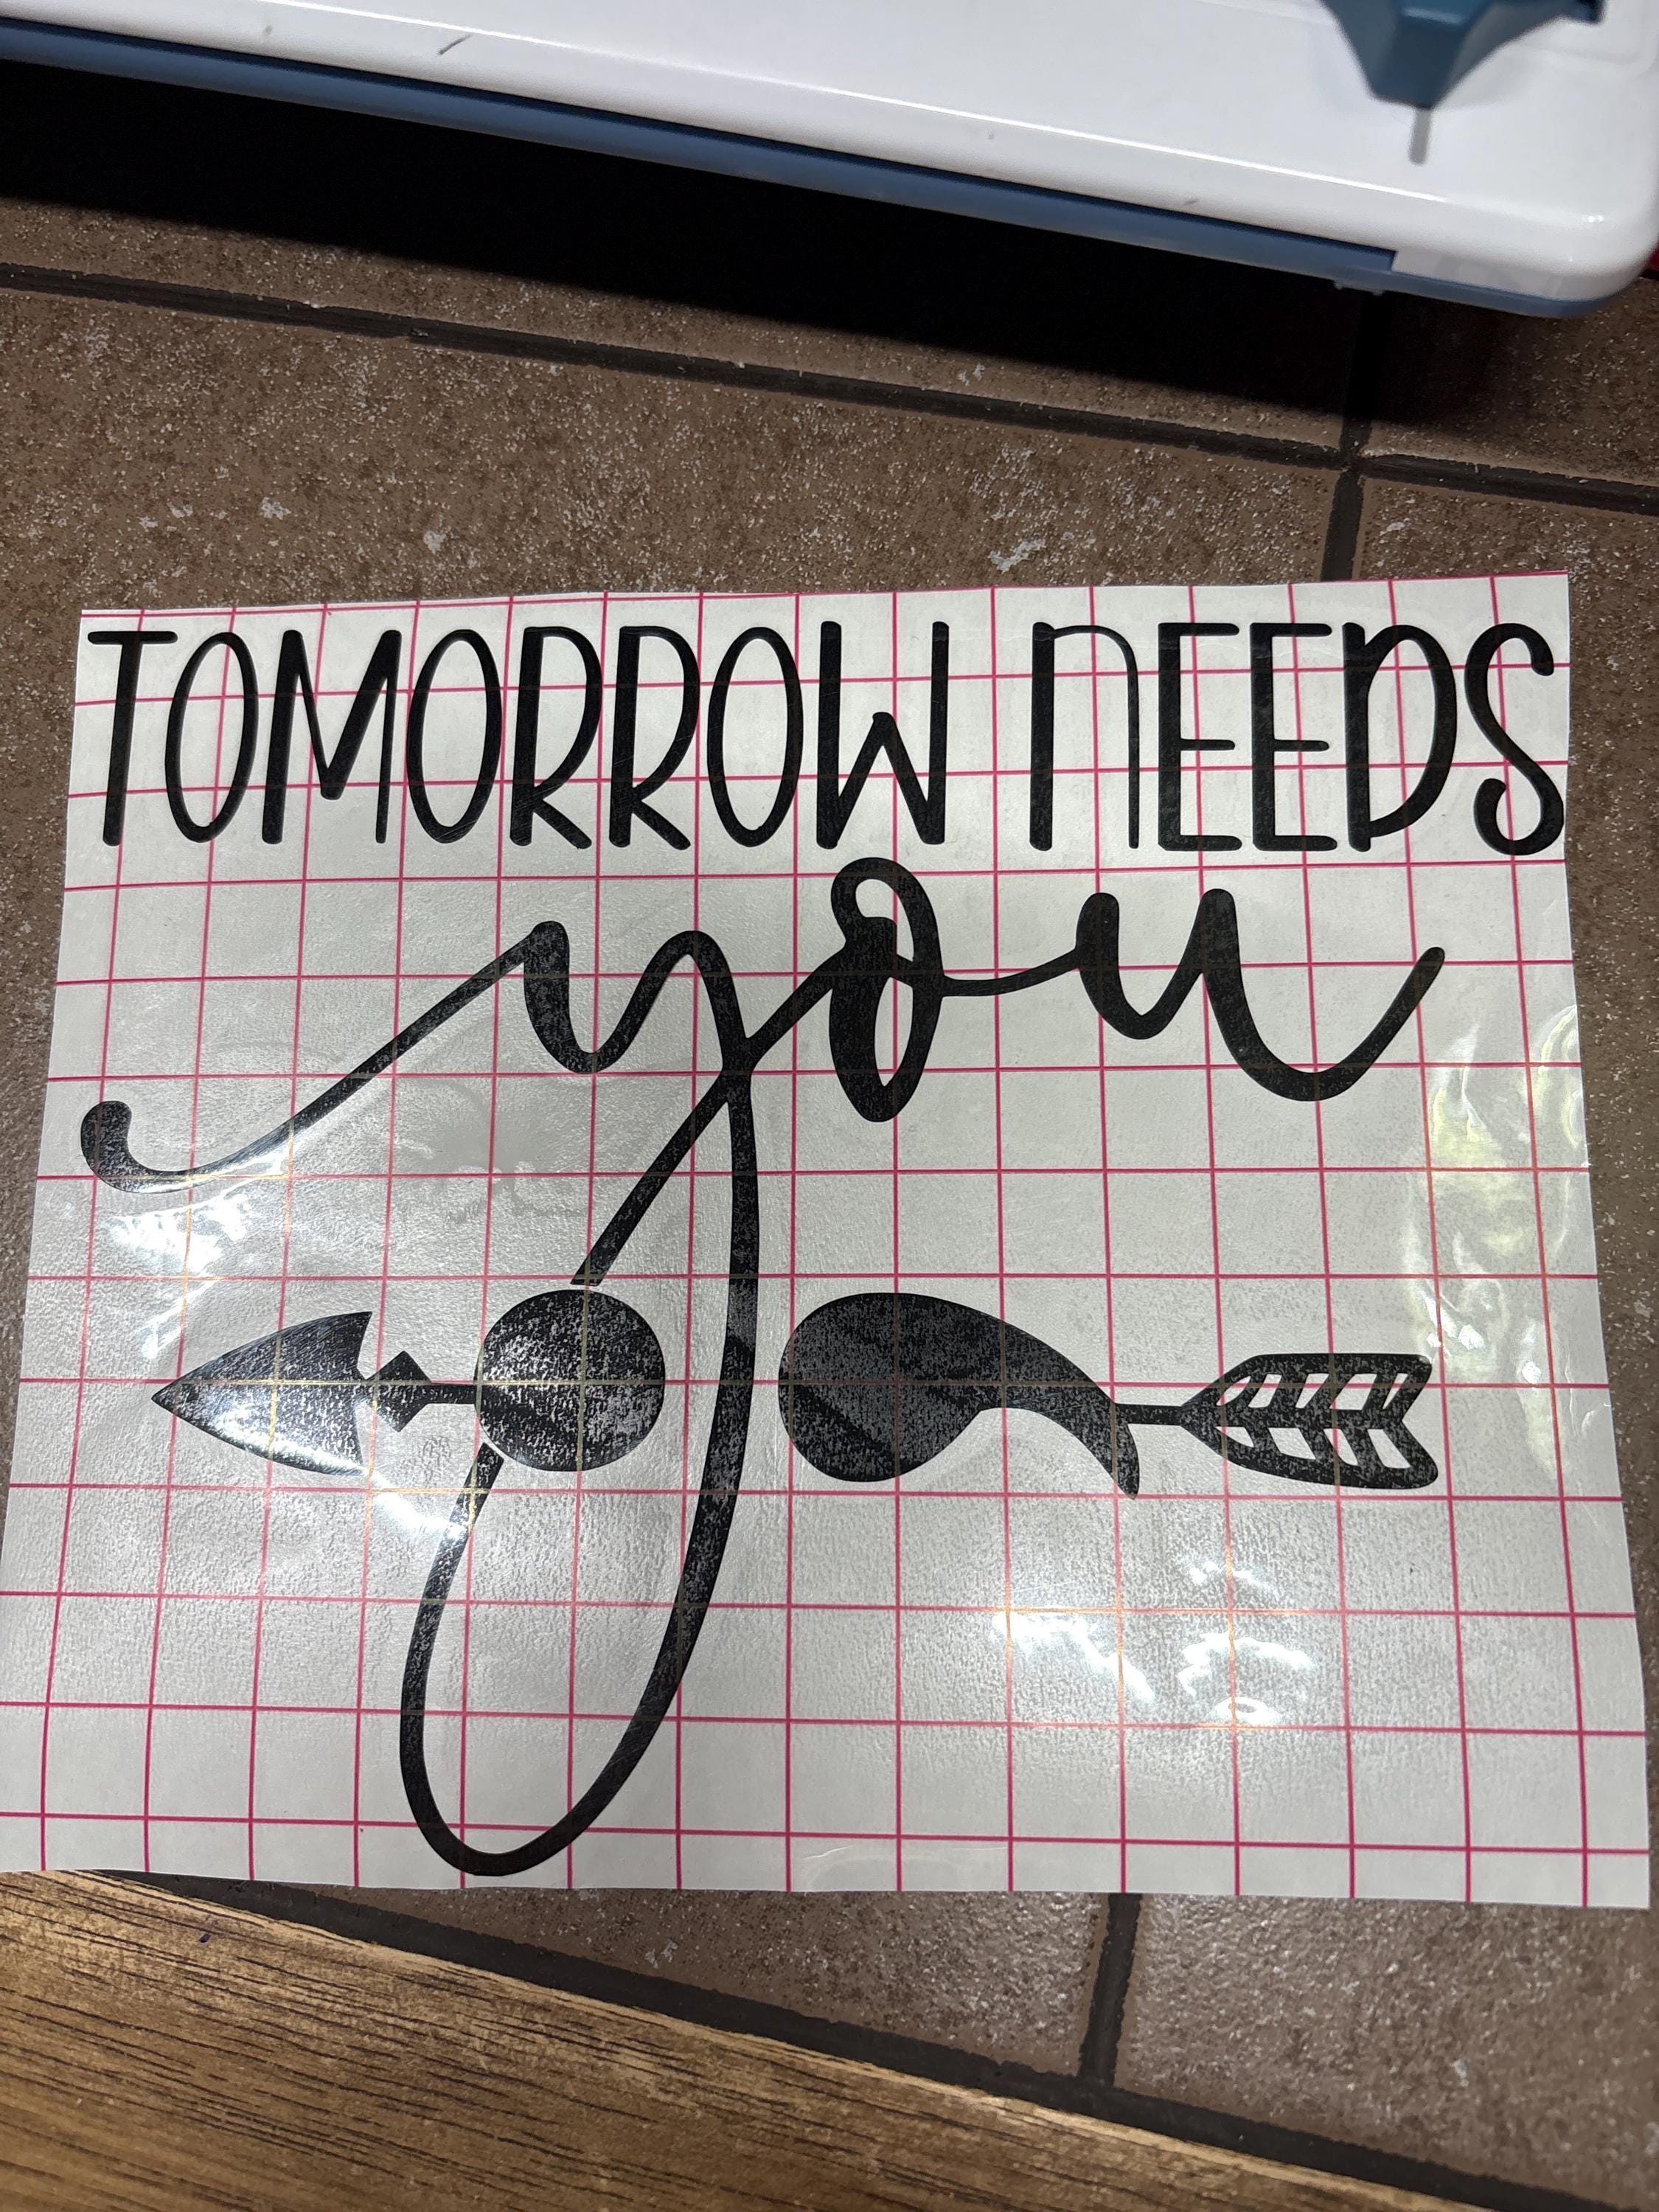 TOMORROW NEEDS
you